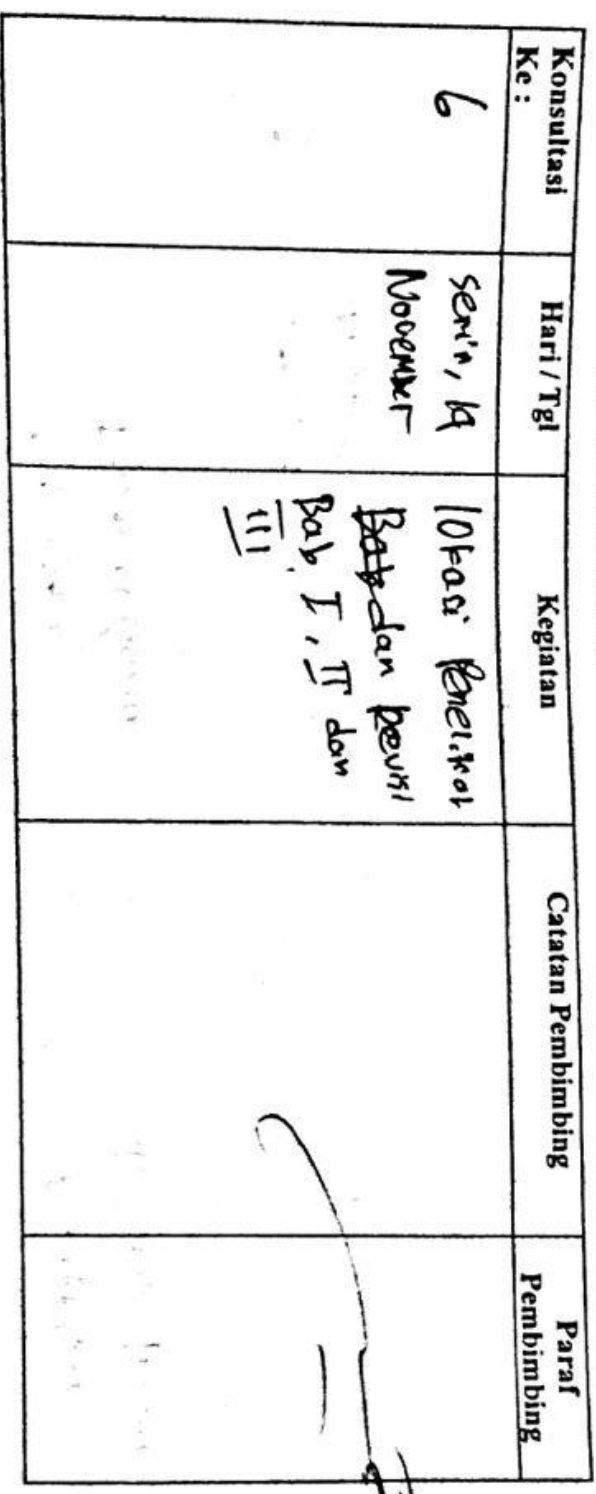 Konsultasi
Ke :
Hari / Tgl
Kegiatan
Catatan Pembimbing
Paraf
Pembimbing
6
Senin, 19
November
lokasi Penelitian
Bab dan Revisi
Bab I, II dan
III